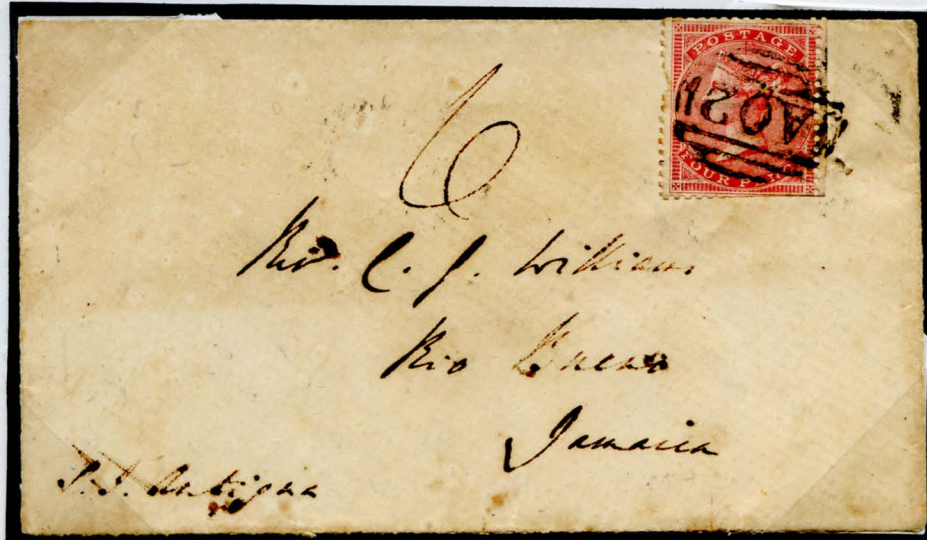 POSTAGE
A02
FOUR PENCE
6
Rev. C. J. Williams
Rio Bueno
Jamaica
Antigua